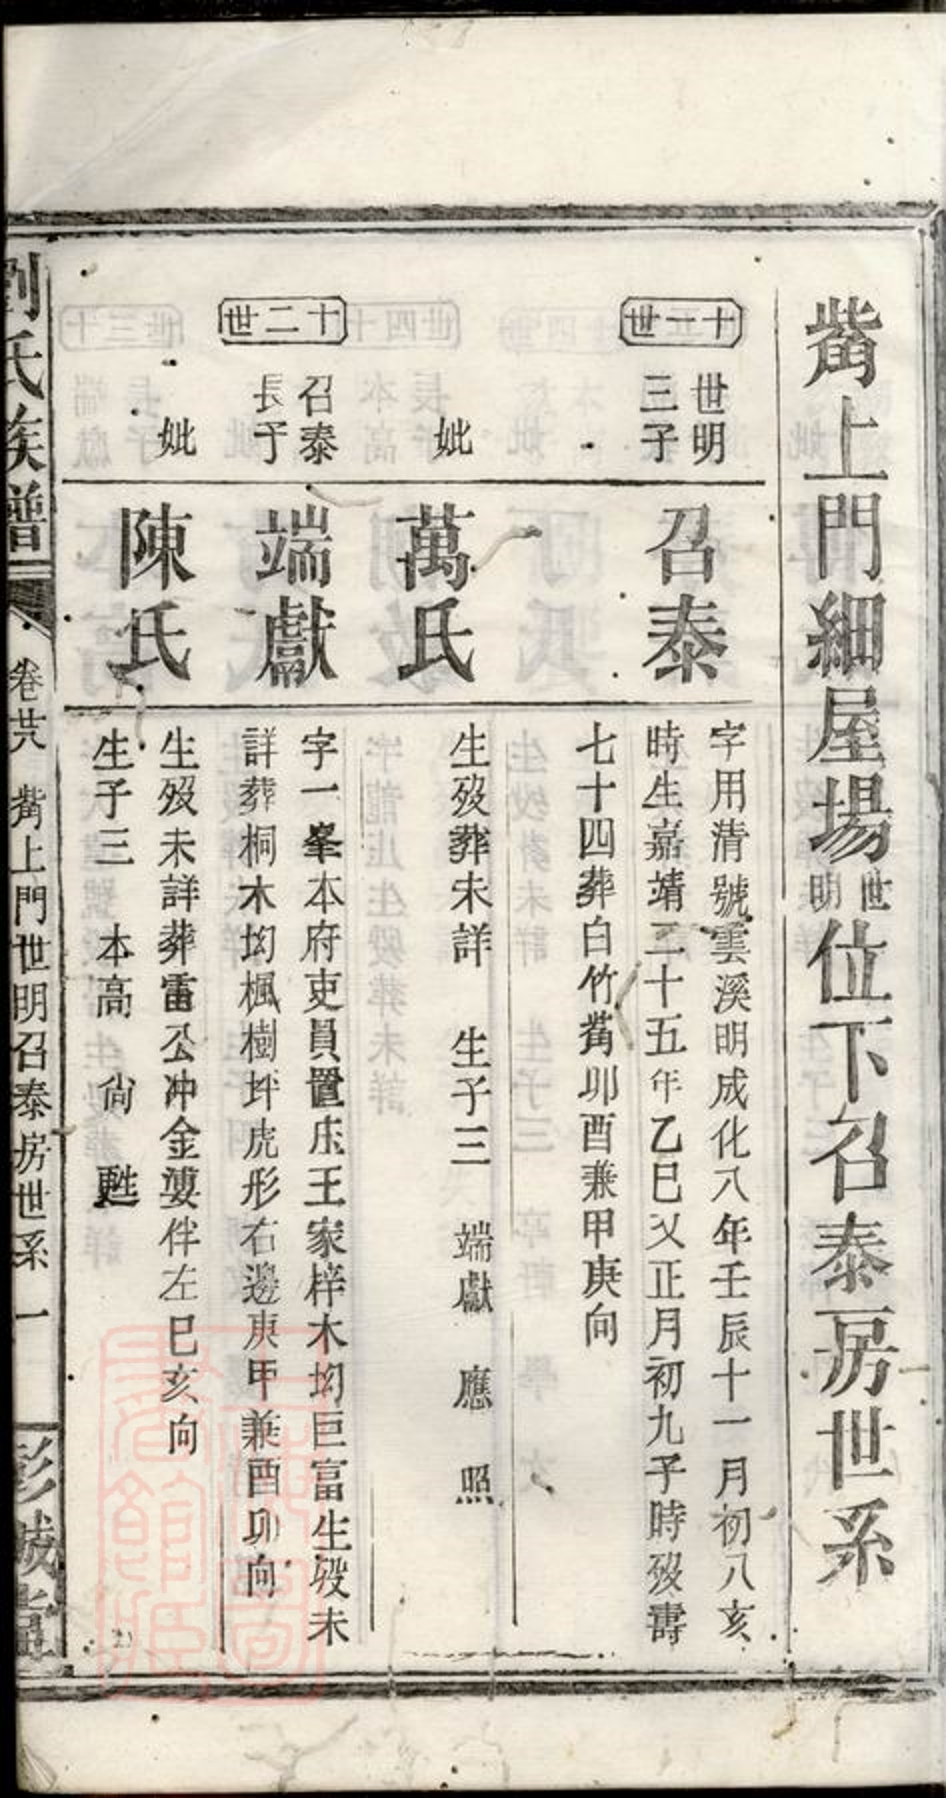 觜上門細屋場世明位下召泰房世系
十一世
世明
三子
召泰
字用清號雲溪明成化八年壬辰十一月初八亥
時生嘉靖二十五年乙巳又正月初九子時歿壽
七十四葬白竹觜卯酉兼甲庚向
妣
萬氏
生歿葬未詳 生子三 端獻 應 照
十二世
召泰
長子
端獻
字一峯本府吏員置庄王家梓木坳巨富生歿未
詳葬桐木坳楓樹坪虎形右邊庚甲兼酉卯向
妣
陳氏
生歿未詳葬雷公冲金婆伴左巳亥向
生子三 本高 尙 甦
劉氏族譜
卷廿八 觜上門世明召泰房世系 一
彭城堂